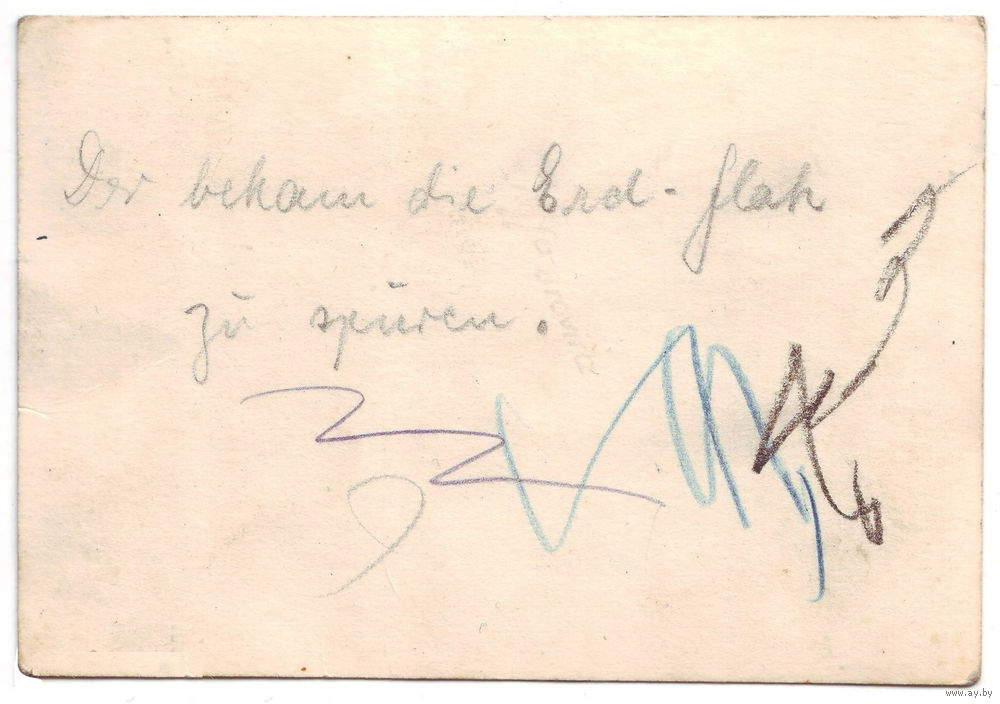 Der bekam die Erd-flak
zu spüren.
www.ay.by